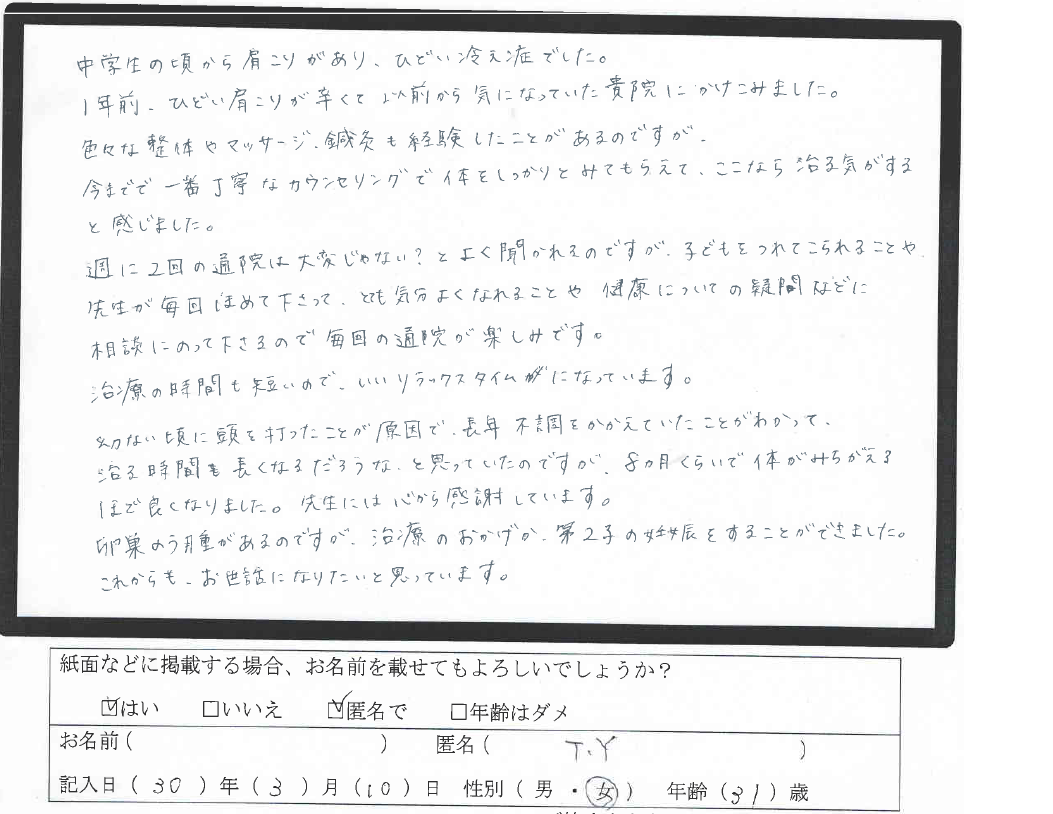 中学生の頃から肩こりがあり、ひどい冷え症でした。
1年前、ひどい肩こりが辛くて以前から気になっていた貴院にかけこみました。
色々な整体やマッサージ、鍼灸も経験したことがあるのですが、
今までで一番丁寧なカウンセリングで体をしっかりとみてもらえて、ここなら治る気がする
と感じました。
週に2回の通院は大変じゃない?とよく聞かれるのですが、子どもをつれてこられることや、
先生が毎回ほめて下さって、とても気分よくなれることや健康についての疑問などに
相談にのって下さるので毎回の通院が楽しみです。
治療の時間も短いので、いいリラックスタイムになっています。
幼ない頃に頭を打ったことが原因で、長年不調をかかえていたことがわかって、
治る時間も長くなるだろうな、と思っていたのですが、8ヵ月くらいで体がみちがえる
ほど良くなりました。先生には心から感謝しています。
卵巣のう腫があるのですが、治療のおかげか、第2子の妊娠をすることができました。
これからも、お世話になりたいと思っています。
紙面などに掲載する場合、お名前を載せてもよろしいでしょうか?
☑はい □いいえ ☑匿名で □年齢はダメ
お名前( ) 匿名( T.Y )
記入日(30)年(3)月(10)日 性別(男・女) 年齢(31)歳